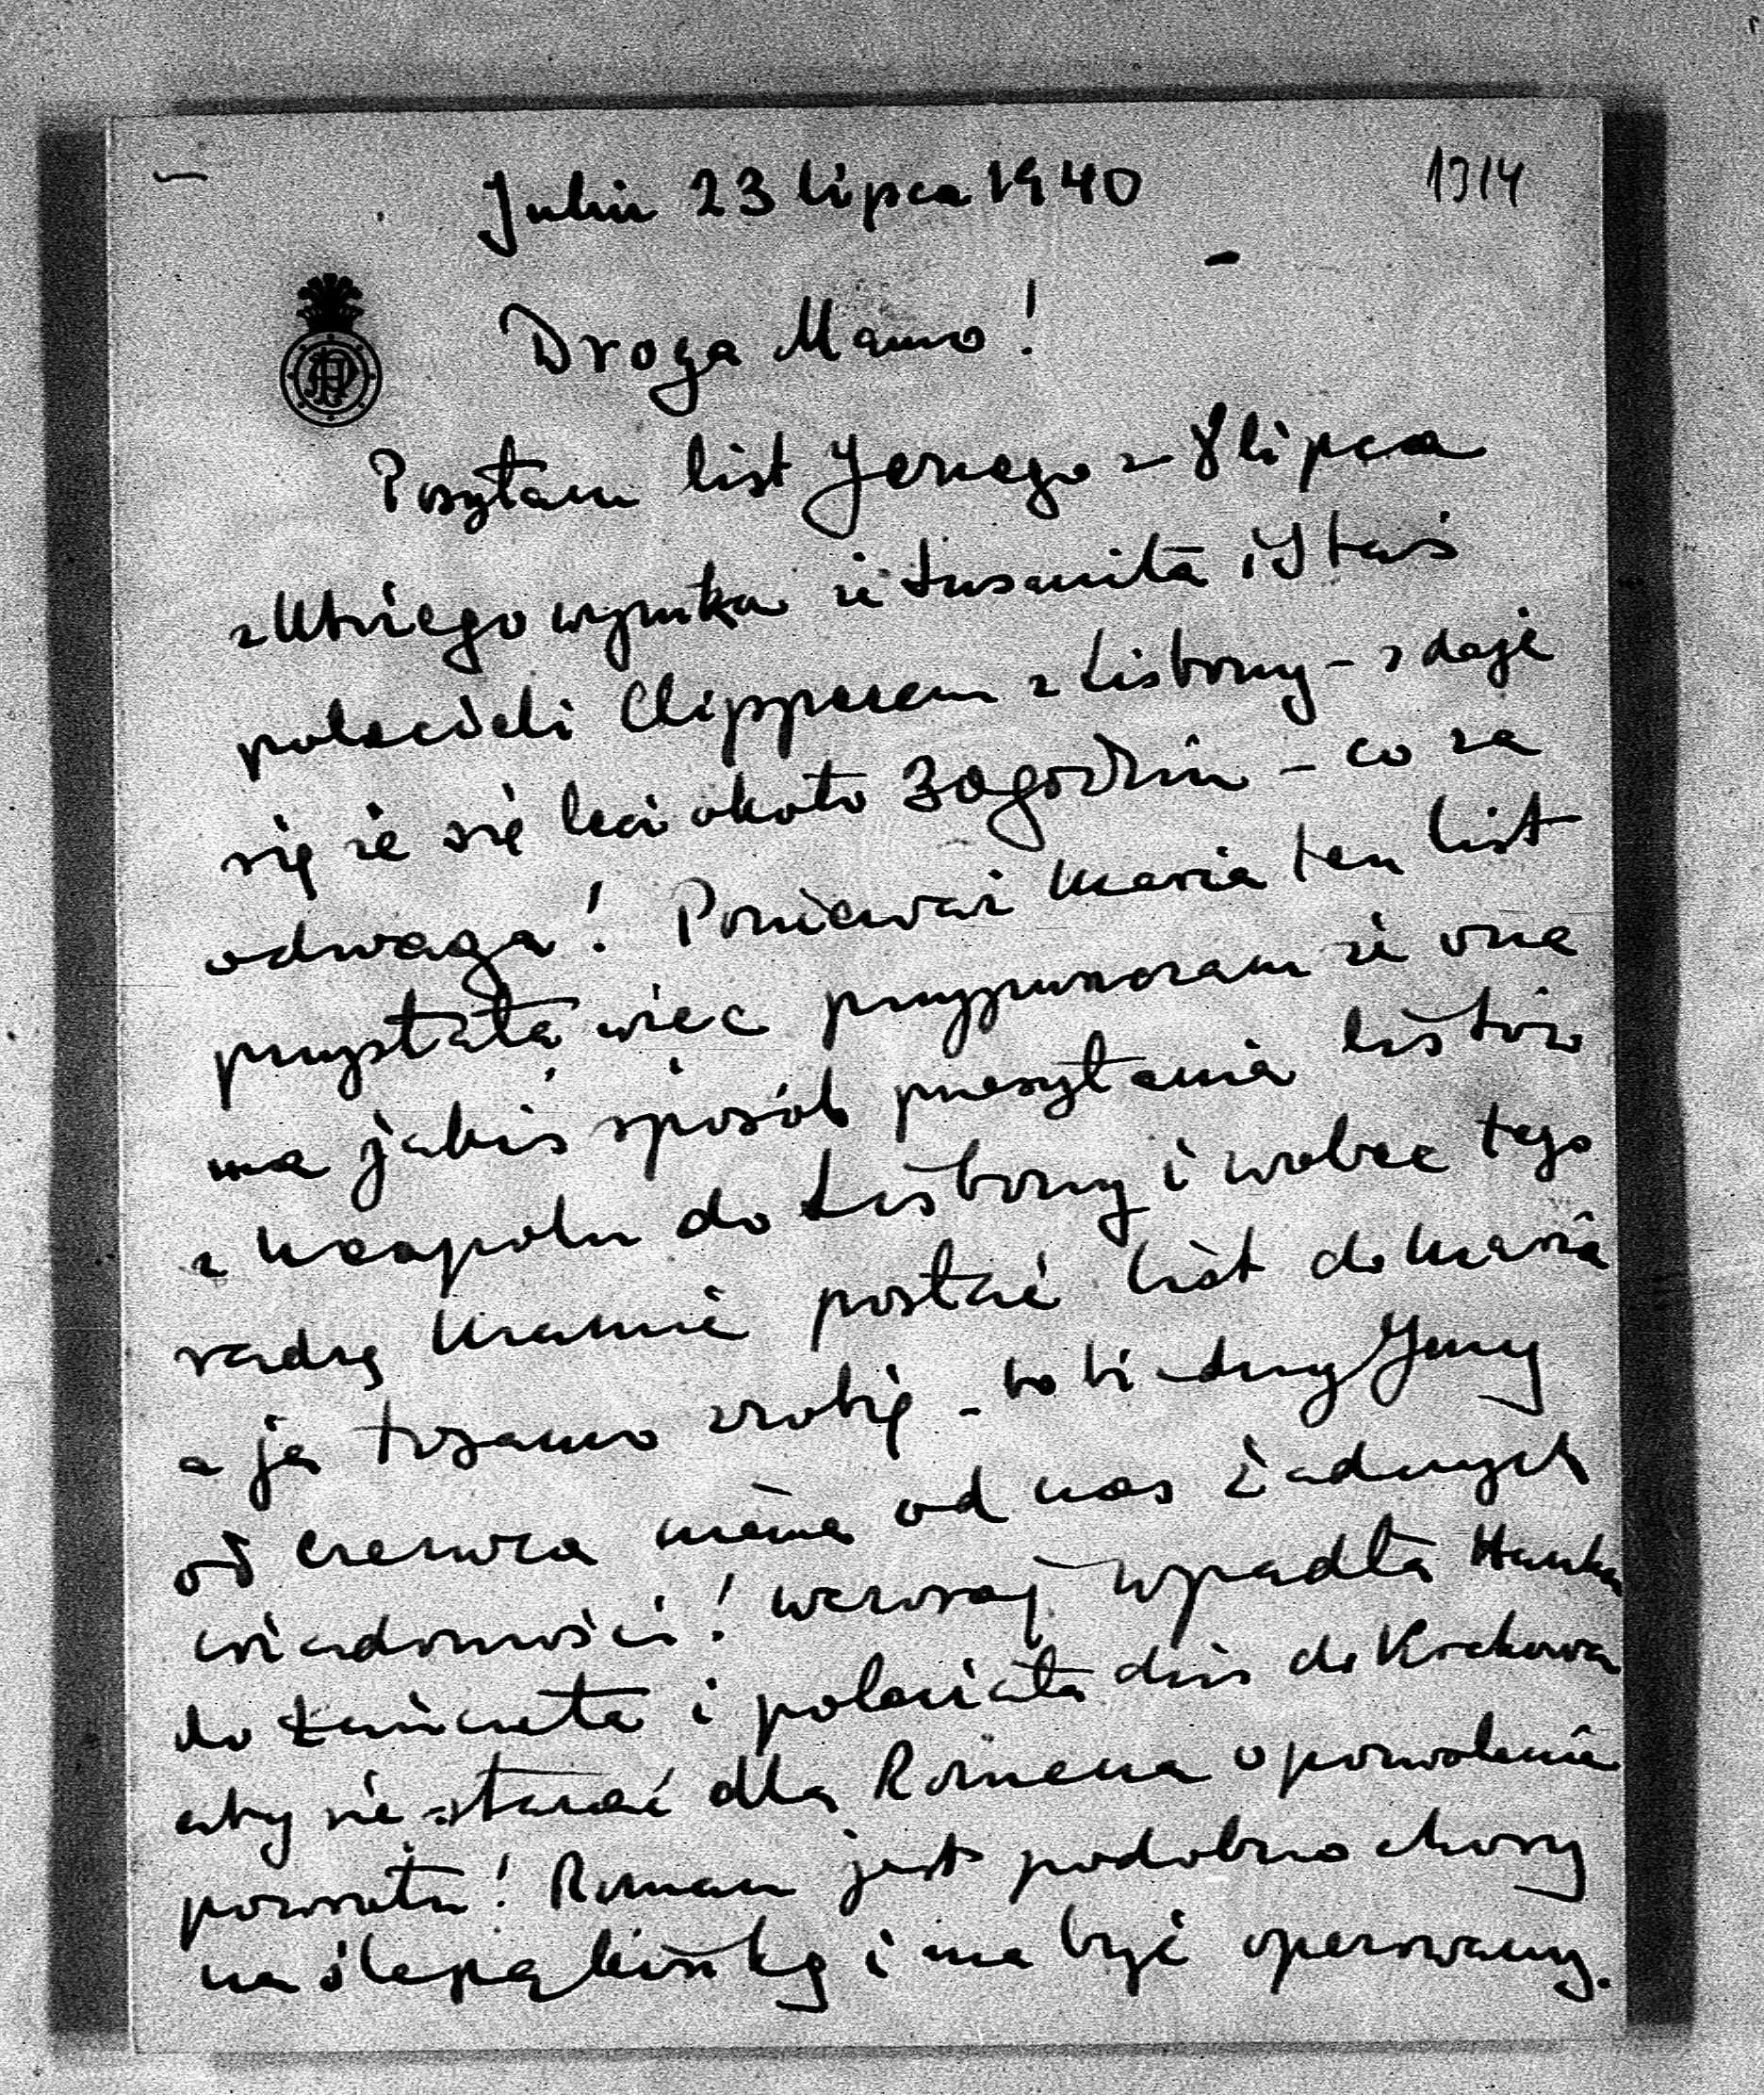 Julin 23 lipca 1940
1314
Droga Mamo!
Posyłam list Jerzego z 8 lipca
z którego wynika że Susanita i Staś
polecieli Clipperem z Lisbony – zdaje
się że się leci około 30 godzin – co za
odwaga! Ponieważ Maria ten list
przysłała więc przypuszczam że ona
ma jakiś sposób przesyłania listów
z Neapolu do Lisbony i wobec tego
radzę Mamie posłać list do Maria
a ja tosamo zrobię – bo biedny Jerzy
od czerwca niema od nas żadnych
wiadomości! Wczoraj wpadła
do Łańcuta i poleciała dziś do Krakowa
aby się starać dla Romana o pozwolenie
powrotu! Roman jest podobno chory
na ślepą kiszkę i ma być operowany.